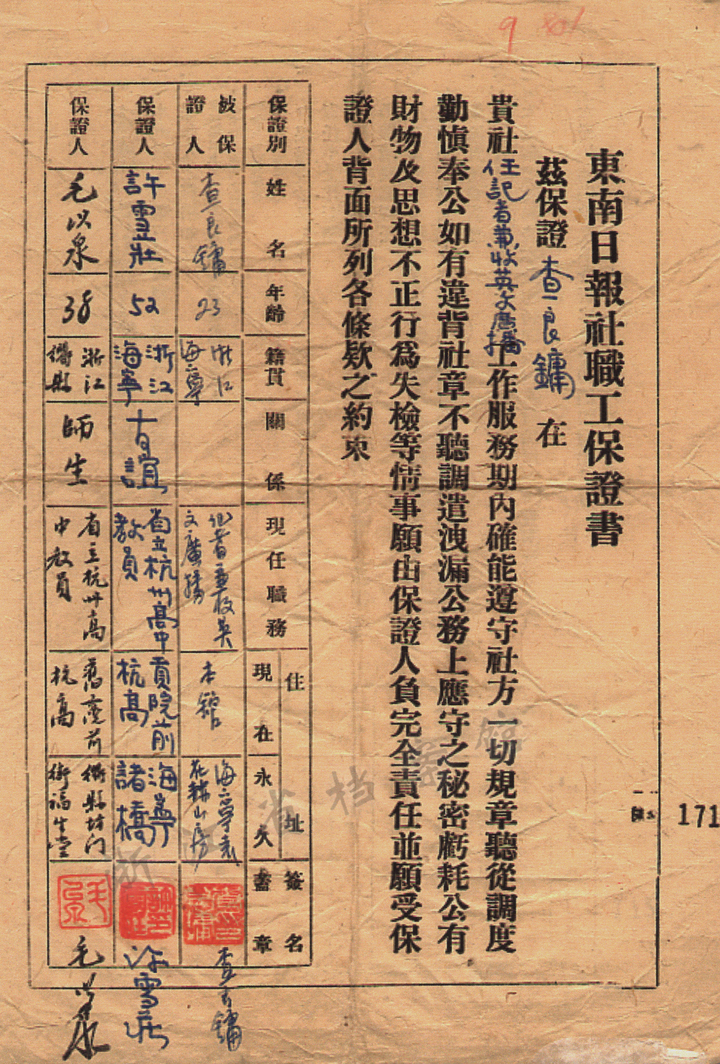 東南日報社職工保證書
茲保證查良鏞在
貴社任記者兼收英文廣播工作服務期內確能遵守社方一切規章聽從調度
勤慎奉公如有違背社章不聽調遣洩漏公務上應守之秘密虧耗公有
財物及思想不正行為失檢等情事願由保證人負完全責任並願受保
證人背面所列各條欵之約束
保證別 姓名 年齡 籍貫 關係 現任職務 住址 現在 永久 簽名蓋章
被保證人 查良鏞 23 浙江海寧 記者兼收英文廣播 本館 海寧袁花 查良鏞
保證人 許雪壯 52 浙江海寧 友誼 省立杭州高中教員 貢院前杭高 海寧諸橋
保證人 毛以泉 38 浙江 師生 省立杭州高中教員 杭高 毛
171
9 801
浙江省档案館